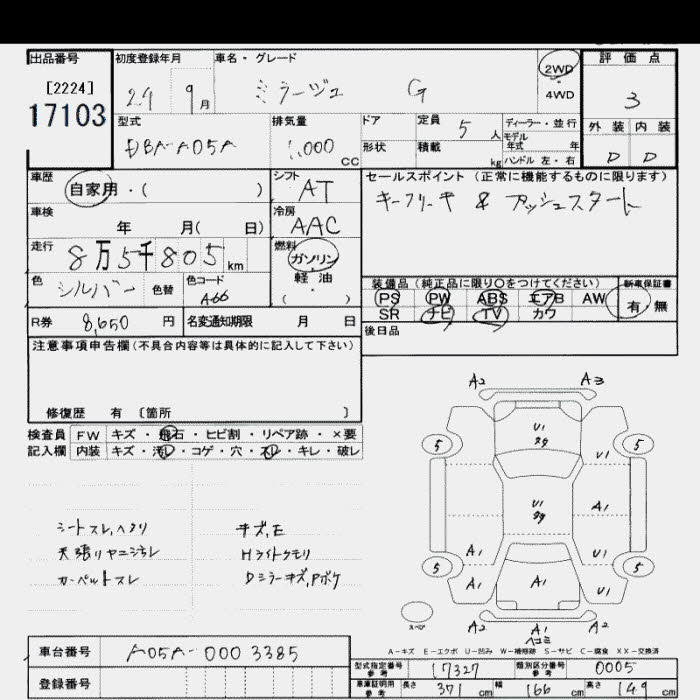 出品番号 初度登録年月 車名・グレード 評価点
[2224] 24 9月 ミラージュ G 2WD 3
17103 4WD
型式 排気量 ドア 定員 5人 ディーラー・並行 外装 内装
DBA-A05A 1,000cc 形状 積載 kg モデル年式 年 D D
ハンドル 左・右
車歴 シフト セールスポイント (正常に機能するものに限ります)
自家用・( ) AT キーフリーキ & プッシュスタート
車検 冷房
年 月( 日) AAC
走行 燃料
8万5千805km ガソリン
色 色替 色コード 軽油 装備品 (純正品に限り○をつけてください) 新車保証書
シルバー A66 ( ) PS PW ABS エアB AW 有 無
SR ナビ TV カワ
R券 8,650円 名変通知期限 月 日 後日品
注意事項申告欄(不具合内容等は具体的に記入して下さい)
修復歴 有 〔箇所 〕
検査員 FW キズ・飛石・ヒビ割・リペア跡・×要
記入欄 内装 キズ・汚レ・コゲ・穴・スレ・キレ・破レ
A2 A3
U1
タタ
5 U1 5
U1 A1
タタ
シートスレ,ヘタリ キズ,E
天張リヤニヨゴレ Hライトクモリ A1 U1
カーペットスレ Dミラーキズ,Pボケ
5 5
A1 A1 U1
スペア A2 A1 A2
ヘコミ
A-キズ E-エクボ U-凹み W-補修跡 S-サビ C-腐食 XX-交換済
車台番号 A05A-0003385
型式指定番号 参考 17327 類別区分番号 参考 0005
登録番号 車庫証明用 参考 長さ 371cm 幅 166cm 高さ 149cm